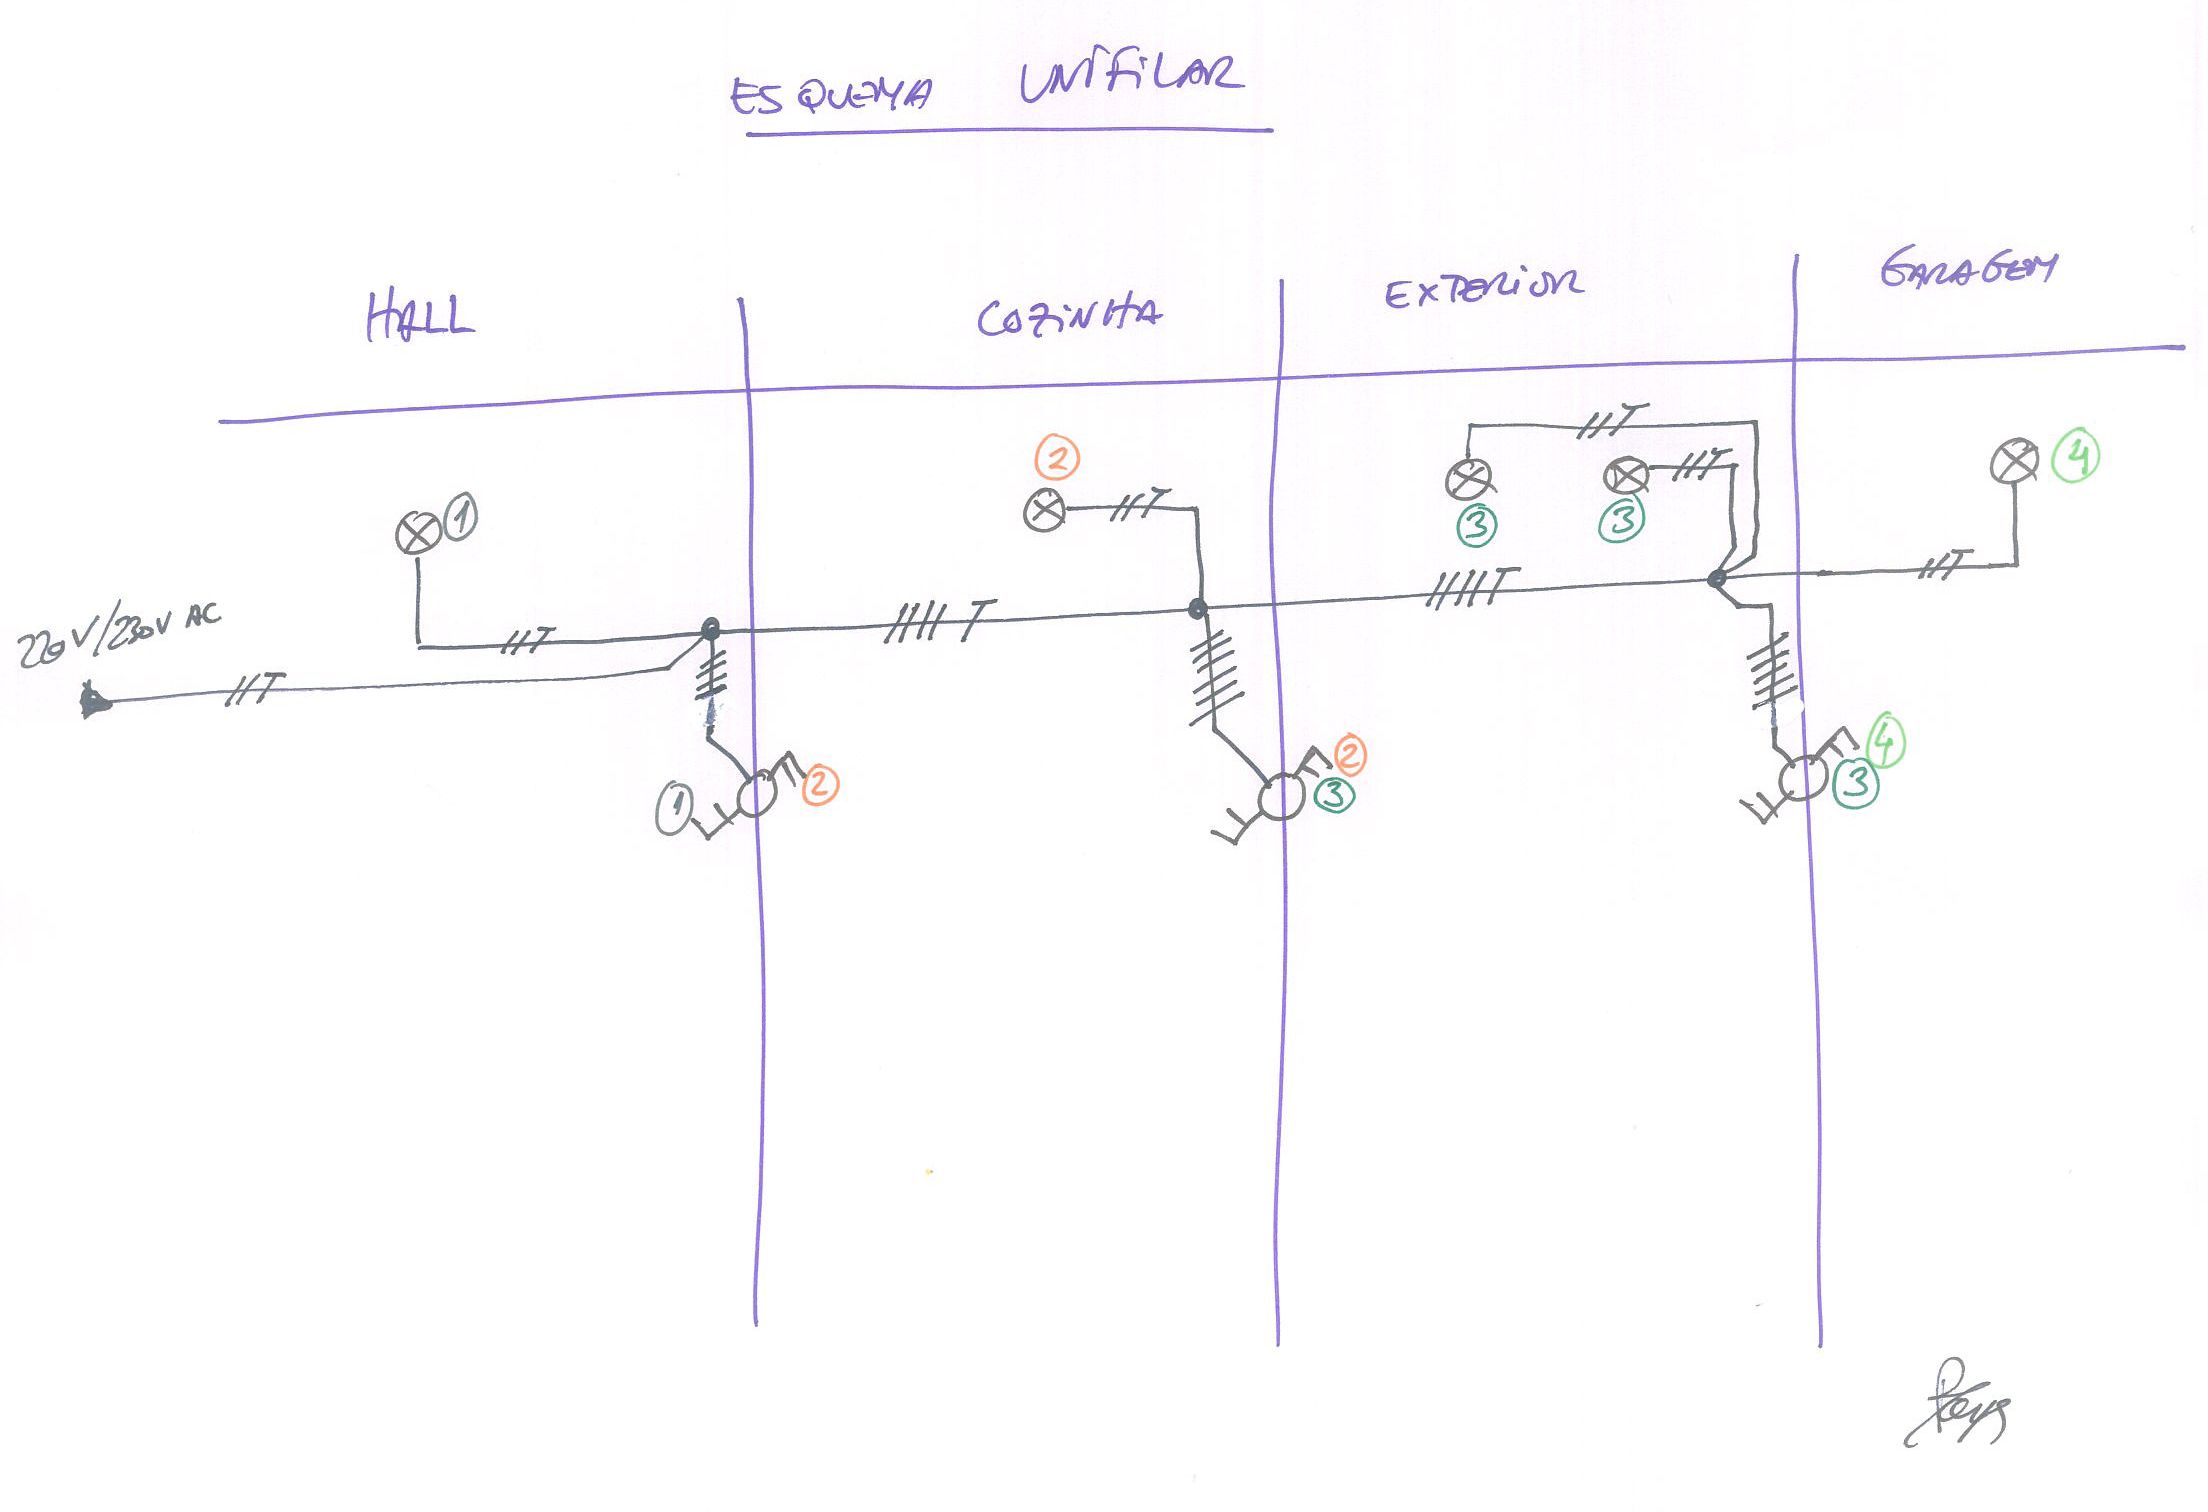 ESQUEMA UNIFILAR
HALL
COZINHA
EXTERIOR
GARAGEM
220V/230V AC
T
1
T
T
2
T
T
T
T
3
3
T
4
1
2
2
3
4
3